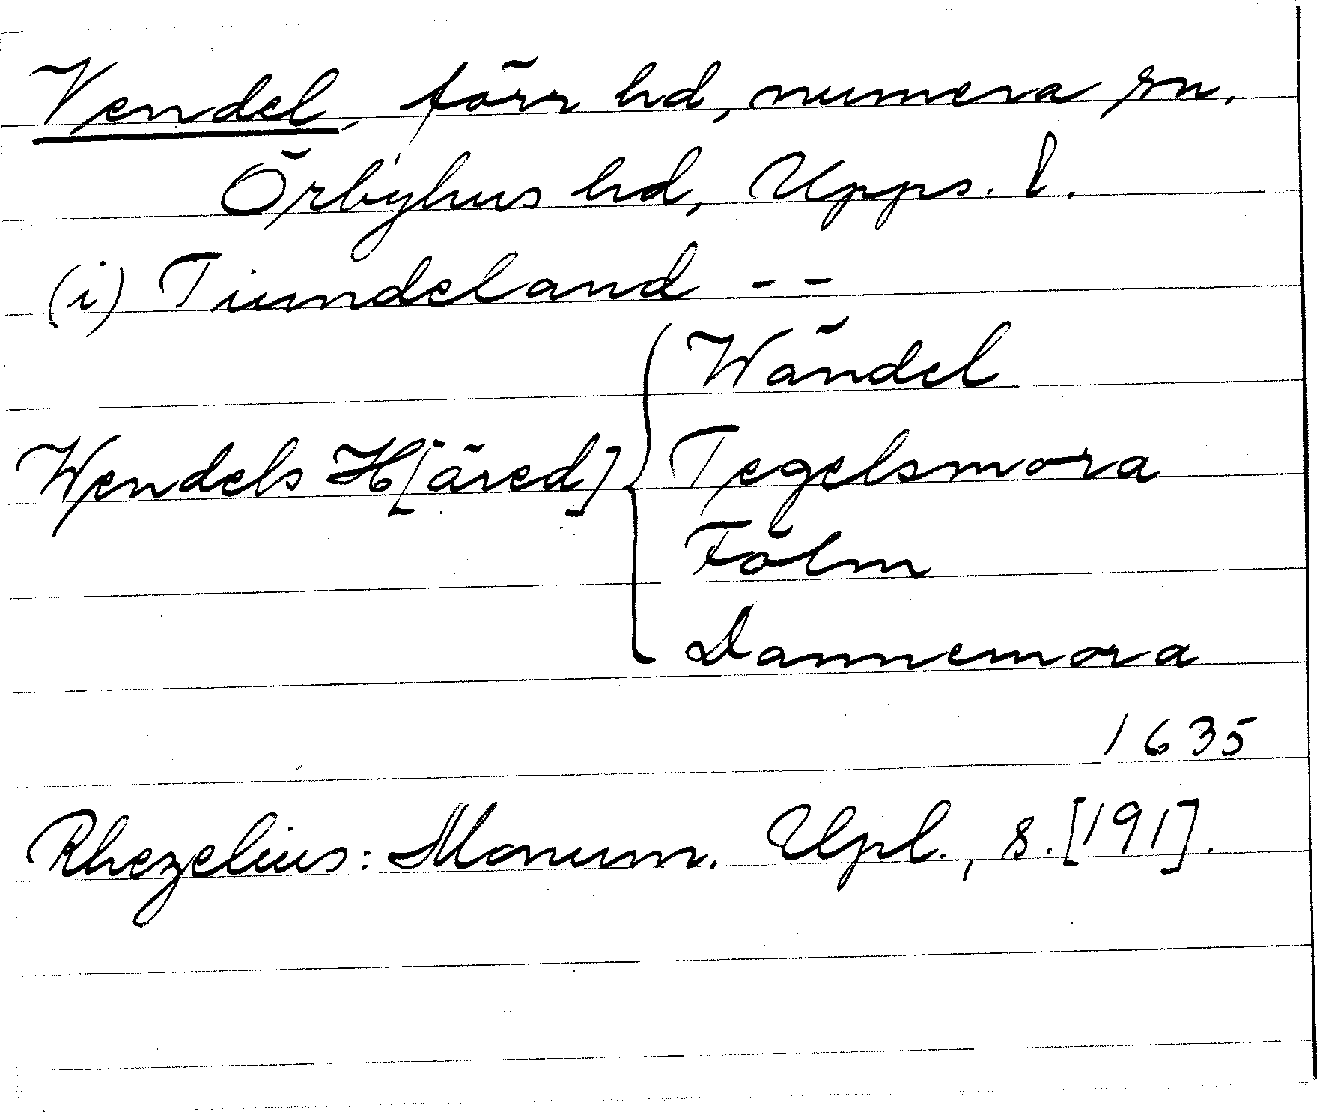 Vendel, förr hd, numera sn.
Örbyhus hd, Upps. l.
(i) Tiundeland --
Wändel
Wendels H[äred] Tegelsmora
Fölm
Dannemora
1635
Rhezelius: Monum. Upl., s. [191].